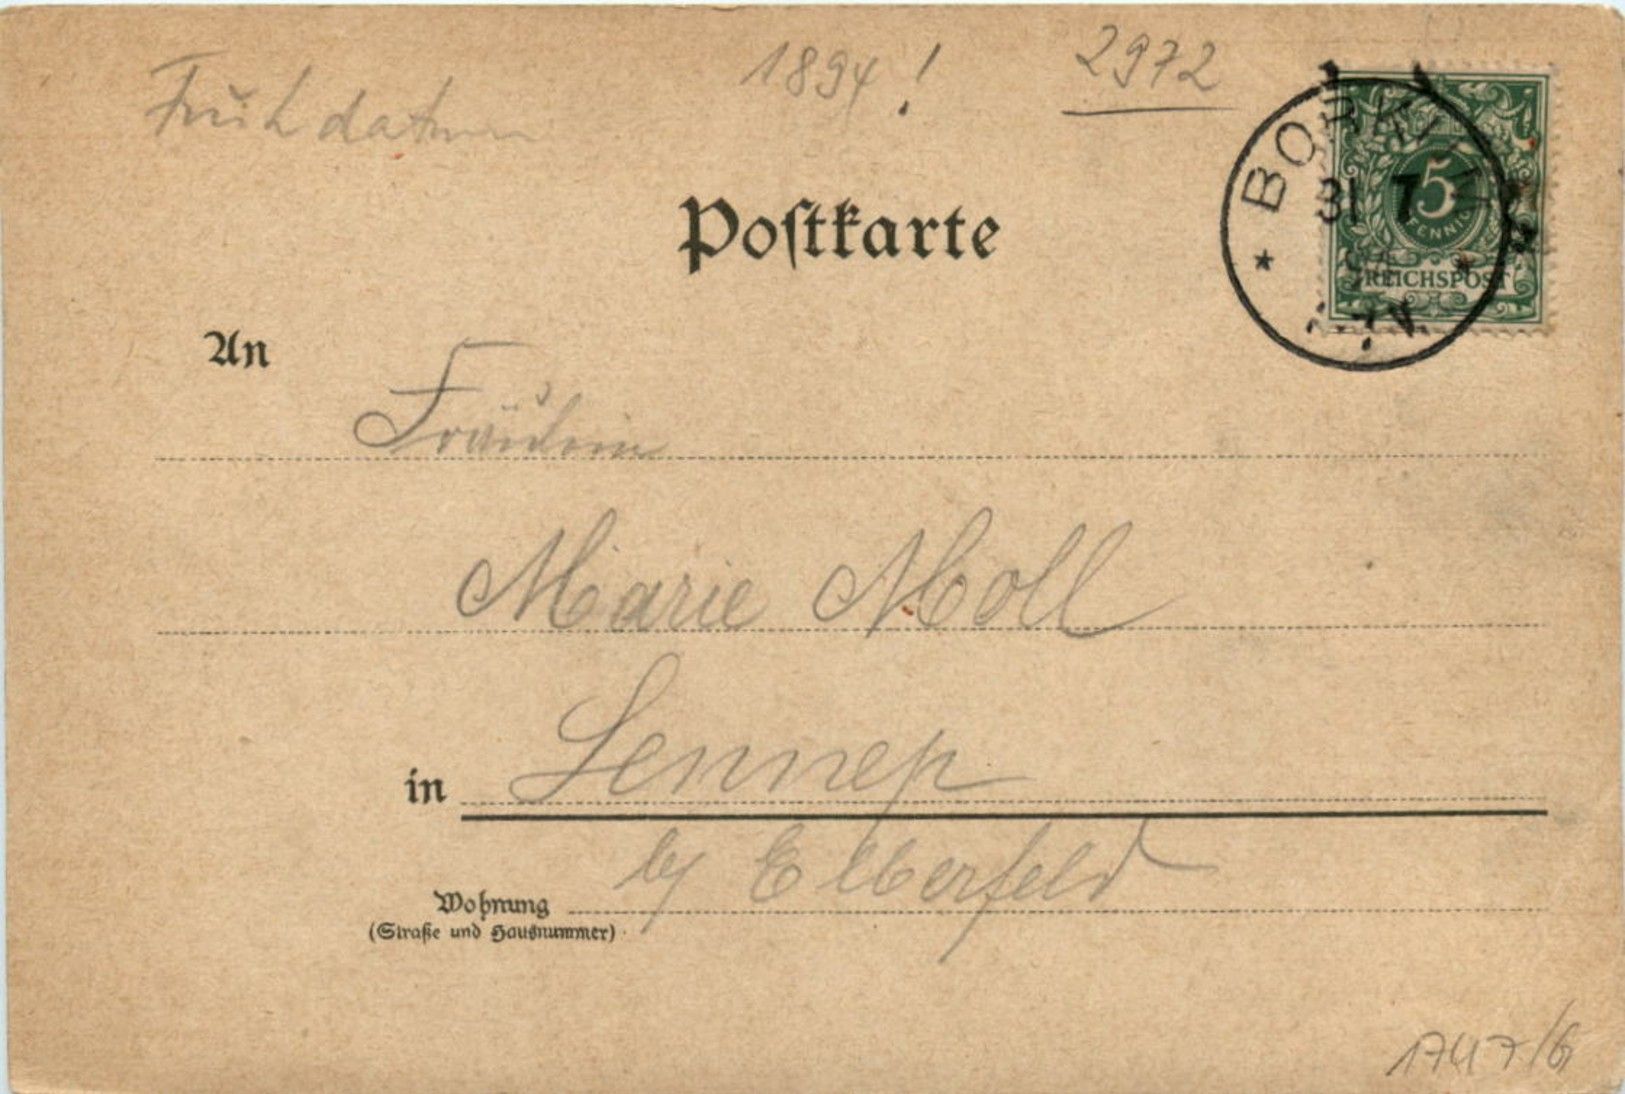 Frühdatum 1894! 2972
BORKUM
31 7
5
PFENNIG
REICHSPOST
Poſtkarte
An
Fräulein
Marie Moll
in Lennep
by Elberfeld
Wohnung
(Straße und Hausnummer)
1747/6